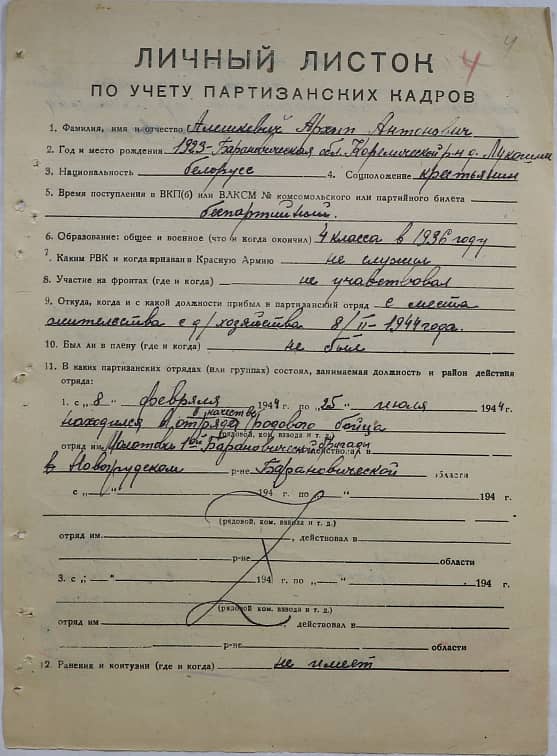 4
4
ЛИЧНЫЙ ЛИСТОК
ПО УЧЕТУ ПАРТИЗАНСКИХ КАДРОВ
1. Фамилия, имя и отчество Алешкевич Архип Антонович
2. Год и место рождения 1923 - Барановическая обл. Кореличский р-н д.
3. Национальность белорусс 4. Соцположение крестьянин
5. Время поступления в ВКП(б) или ВЛКСМ № комсомольского или партийного билета
беспартийный.
6. Образование: общее и военное (что и когда окончил) 4 класса в 1936 году
7. Каким РВК и когда призван в Красную Армию не служил
8. Участие на фронтах (где и когда) не учавствовал
9. Откуда, когда и с какой должности прибыл в партизанский отряд с места
жительства с д/хозяйства 8/II-1944 года.
10. Был ли в плену (где и когда) не был
11. В каких партизанских отрядах (или группах) состоял, занимаемая должность и район действия
отряда:
1. с „8" февраля 1944 г. по „25" июля 1944 г.
находился в отряде в качестве рядового бойца
(рядовой, ком. взвода и т. д.)
отряд им. 1-ой Барановической бригады действовал в
в Новогрудском р-не Барановической области
с „ " 194 г. по „ " 194 г.
(рядовой, ком. взвода и т. д.)
отряд им. , действовал в
р-не области
3. с „ " 194 г. по „ " 194 г.
(рядовой ком. взвода и т. д.)
отряд им , действовал в
р-не области
12. Ранения и контузии (где и когда) не имеет